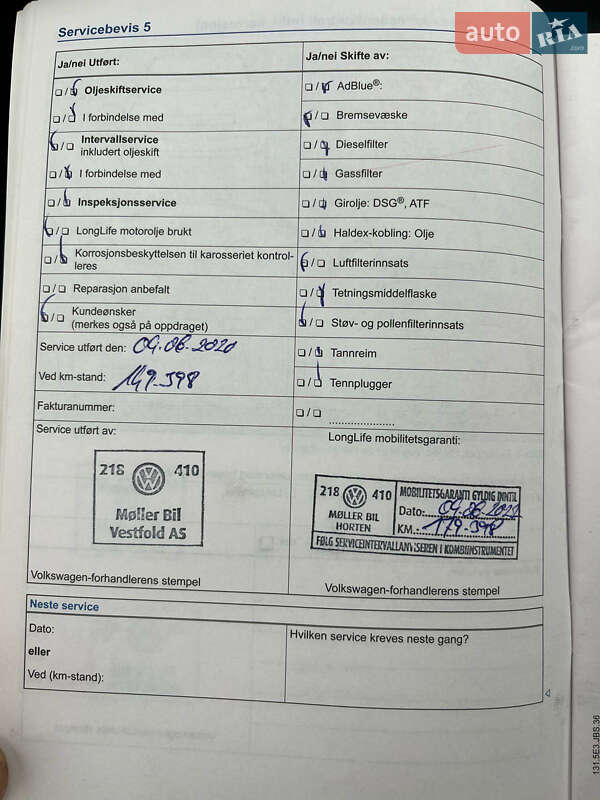 Servicebevis 5
auto RIA .com
Ja/nei Utført:
☐/☐ Oljeskiftservice
☐/☐ I forbindelse med
☐/☐ Intervallservice
inkludert oljeskift
☐/☐ I forbindelse med
☐/☐ Inspeksjonsservice
☐/☐ LongLife motorolje brukt
☐/☐ Korrosjonsbeskyttelsen til karosseriet kontrol-
leres
☐/☐ Reparasjon anbefalt
☐/☐ Kundeønsker
(merkes også på oppdraget)
Service utført den: 04.06.2020
Ved km-stand: 149-398
Fakturanummer:
Service utført av:
218 410
Møller Bil
Vestfold AS
Volkswagen-forhandlerens stempel
Ja/nei Skifte av:
☐/☐ AdBlue®:
☐/☐ Bremsevæske
☐/☐ Dieselfilter
☐/☐ Gassfilter
☐/☐ Girolje: DSG®, ATF
☐/☐ Haldex-kobling: Olje
☐/☐ Luftfilterinnsats
☐/☐ Tetningsmiddelflaske
☐/☐ Støv- og pollenfilterinnsats
☐/☐ Tannreim
☐/☐ Tennplugger
☐/☐ ......................
LongLife mobilitetsgaranti:
218 410
MØLLER BIL
HORTEN
MOBILITETSGARANTI GYLDIG INNTIL
Dato: 04.06.2022
KM.: 179-398
FØLG SERVICEINTERVALLANVISEREN I KOMBIINSTRUMENTET
Volkswagen-forhandlerens stempel
Neste service
Dato:
eller
Ved (km-stand):
Hvilken service kreves neste gang?
131.5E3.JBS.36